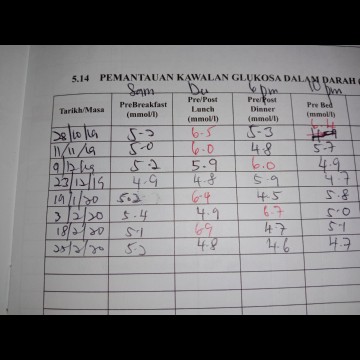 8am Du 6pm 10pm
5.14 PEMANTAUAN KAWALAN GLUKOSA DALAM DARAH (
Tarikh/Masa PreBreakfast (mmol/l) Pre/Post Lunch (mmol/l) Pre/Post Dinner (mmol/l) Pre Bed (mmol/l)
28/10/19 5-2 6.5 5-3 6.4
11/11/19 5-0 6.0 4.8 5-7
9/12/19 5.2 5.9 6.0 4.9
23/12/19 4.9 4.8 5.9 4.7
19/1/20 5.2 6.4 4.5 5.8
3/2/20 5.4 4.9 6.7 5.0
18/2/20 5.1 69 4.7 5.1
25/2/20 5.2 4.8 4.6 4.7